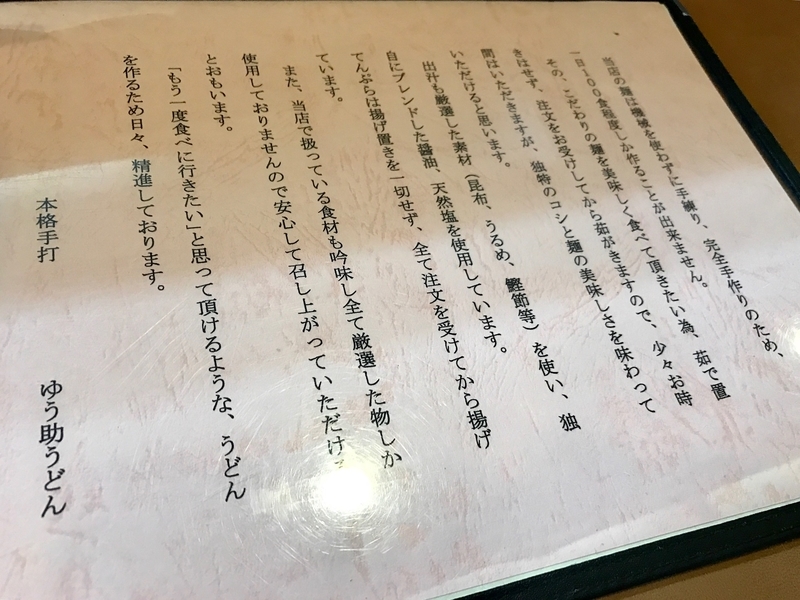 当店の麺は機械を使わずに手練り、完全手作りのため、
一日100食程度しか作ることが出来ません。
その、こだわりの麺を美味しく食べて頂きたい為、茹で置
きはせず、注文をお受けしてから茹がきますので、少々お時
間はいただきますが、独特のコシと麺の美味しさを味わって
いただけると思います。
出汁も厳選した素材（昆布、うるめ、鰹節等）を使い、独
自にブレンドした醤油、天然塩を使用しています。
てんぷらは揚げ置きを一切せず、全て注文を受けてから揚げ
ています。
また、当店で扱っている食材も吟味し全て厳選した物しか
使用しておりませんので安心して召し上がっていただけ
とおもいます。
「もう一度食べに行きたい」と思って頂けるような、うどん
を作るため日々、精進しております。
本格手打 ゆう助うどん